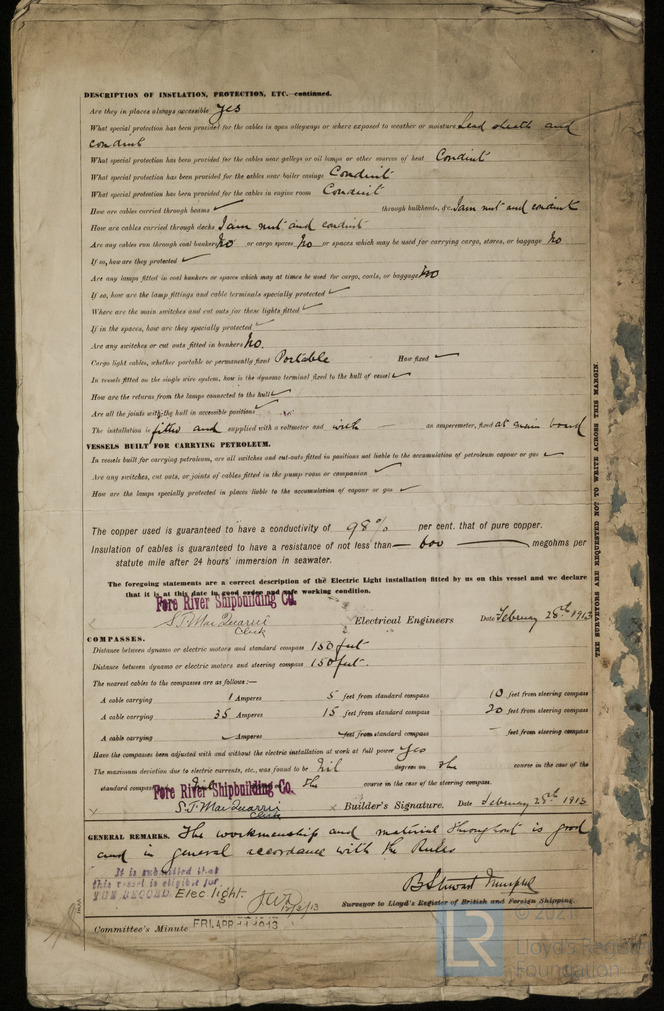 DESCRIPTION OF INSULATION, PROTECTION, ETC.—continued.
Are they in places always accessible yes
What special protection has been provided for the cables in open alleyways or where exposed to weather or moisture Lead sheath and
conduit
What special protection has been provided for the cables near galleys or oil lamps or other sources of heat Conduit
What special protection has been provided for the cables near boiler casings Conduit
What special protection has been provided for the cables in engine room Conduit
How are cables carried through beams ✓ through bulkheads, &c. Jam nut and conduit
How are cables carried through decks Jam nut and conduit
Are any cables run through coal bunkers No or cargo spaces No or spaces which may be used for carrying cargo, stores, or baggage No
If so, how are they protected ✓
Are any lamps fitted in coal bunkers or spaces which may at times be used for cargo, coals, or baggage No
If so, how are the lamp fittings and cable terminals specially protected ✓
Where are the main switches and cut outs for these lights fitted ✓
If in the spaces, how are they specially protected ✓
Are any switches or cut outs fitted in bunkers No.
Cargo light cables, whether portable or permanently fixed Portable How fixed ✓
In vessels fitted on the single wire system, how is the dynamo terminal fixed to the hull of vessel ✓
How are the returns from the lamps connected to the hull ✓
Are all the joints with the hull in accessible positions ✓
The installation is fitted and supplied with a voltmeter and with — an amperemeter, fixed at main board
VESSELS BUILT FOR CARRYING PETROLEUM.
In vessels built for carrying petroleum, are all switches and cut-outs fitted in positions not liable to the accumulation of petroleum vapour or gas ✓
Are any switches, cut outs, or joints of cables fitted in the pump room or companion ✓
How are the lamps specially protected in places liable to the accumulation of vapour or gas ✓
The copper used is guaranteed to have a conductivity of 98% per cent. that of pure copper.
Insulation of cables is guaranteed to have a resistance of not less than — 600 — megohms per
statute mile after 24 hours' immersion in seawater.
The foregoing statements are a correct description of the Electric Light installation fitted by us on this vessel and we declare
that it is at this date in good order and safe working condition.
Fore River Shipbuilding Co.
S.T. MacQuarrie Electrical Engineers Date February 28th 1913
Clerk
COMPASSES.
Distance between dynamo or electric motors and standard compass 150 feet
Distance between dynamo or electric motors and steering compass 150 feet.
The nearest cables to the compasses are as follows:—
A cable carrying 1 Amperes 5 feet from standard compass 10 feet from steering compass
A cable carrying 35 Amperes 15 feet from standard compass 20 feet from steering compass
A cable carrying ✓ Amperes — feet from standard compass — feet from steering compass
Have the compasses been adjusted with and without the electric installation at work at full power yes
The maximum deviation due to electric currents, etc., was found to be Nil degrees on the course in the case of the
standard compass the course in the case of the steering compass.
Fore River Shipbuilding Co.
S.T. MacQuarrie Builder's Signature. Date February 28th 1913
Clerk
GENERAL REMARKS. The workmanship and material throughout is good
and in general accordance with the Rules
It is submitted that
this vessel is eligible for
THE RECORD. Elec. light.
Surveyor to Lloyd's Register of British and Foreign Shipping.
Committee's Minute FRI. APR 11 1913
THE SURVEYORS ARE REQUESTED NOT TO WRITE ACROSS THIS MARGIN.
LR
© 2021
Lloyd's Register
Foundation